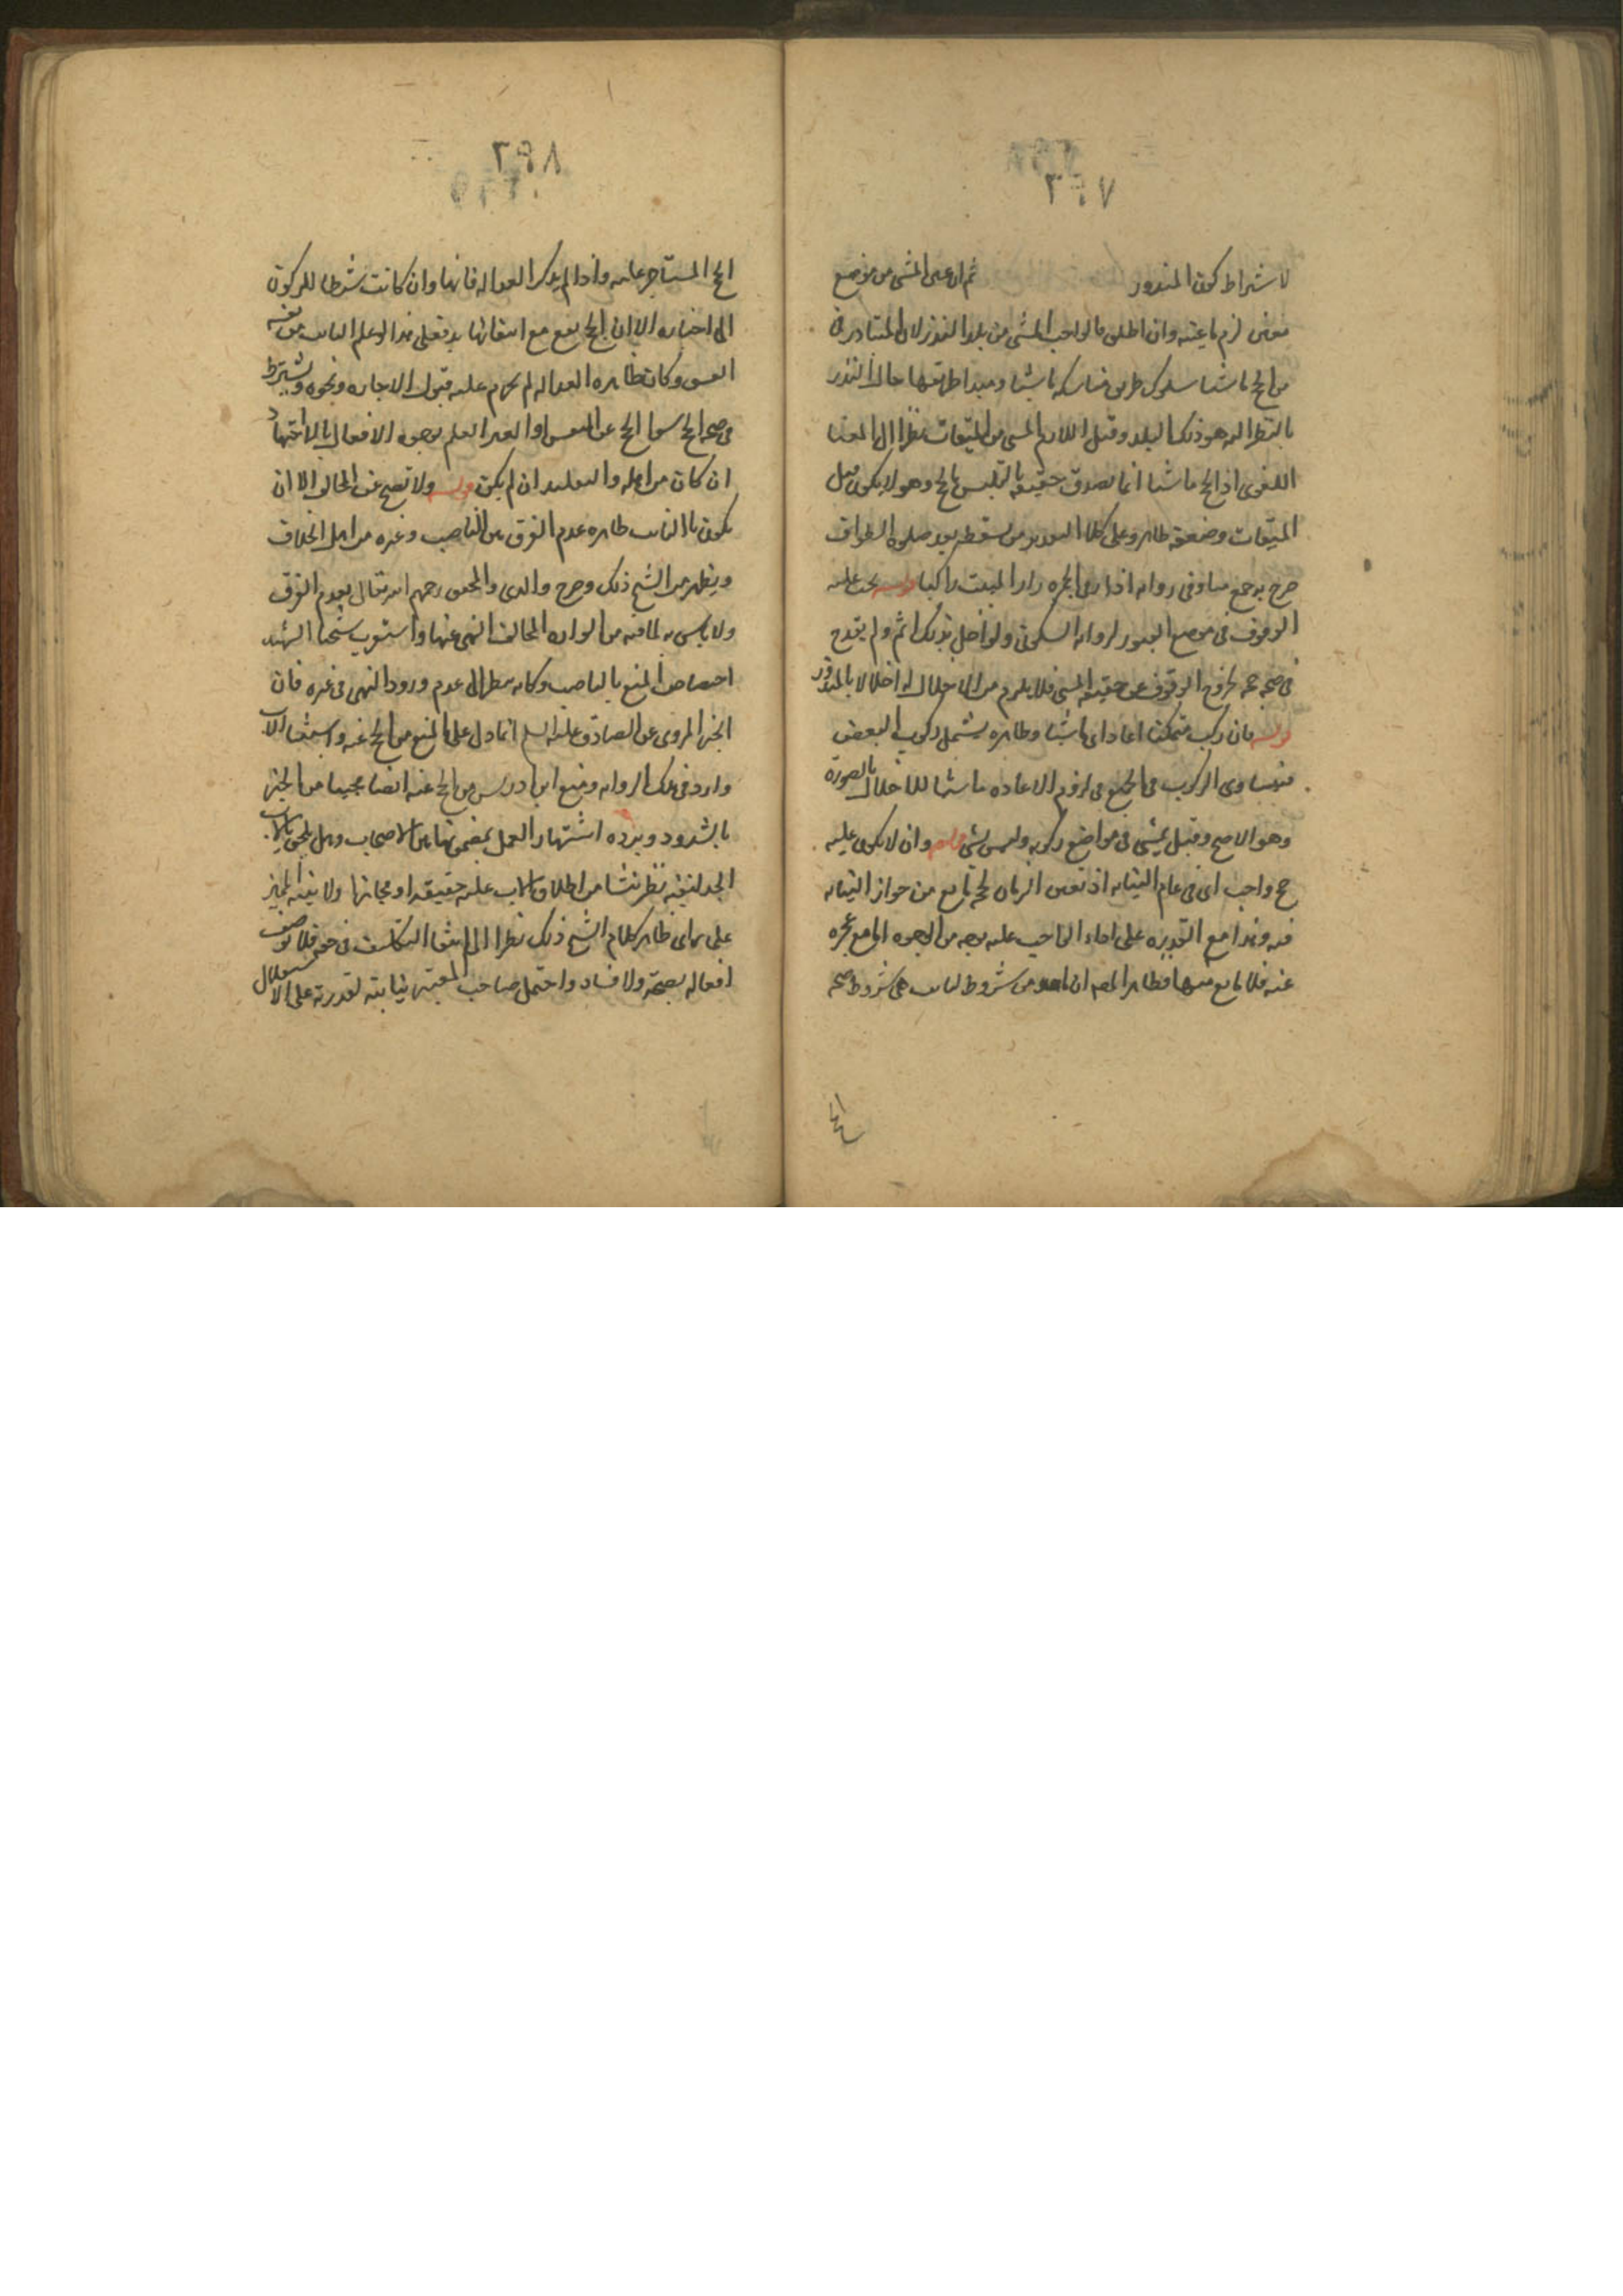 ٢٩٧
لاشتراط كون المنذور ثم ان عين المشى من موضع
معين لزم ما عينه وان اطلق فالواجب المشى من بلد النذر لان المتبادر
من الحج ماشيا سلوك طريق مناسكه ماشيا ومبدا طريقها حال النذر
بالنظر اليه هو ذلك البلد وقيل اللازم المشى من الميقات نظرا الى المعنى
اللغوى اذ الحج ماشيا انما يصدق حقيقة بالتلبس بالحج وهو لا يكون قبل
الميقات وضعفه ظاهر وعلى كلا التقديرين يسقط بعد صلوة الطواف
فى رواية اذا رمى الجمرة زار البيت راكبا قوله يجب عليه
الوقوف فى موضع العبور لرواية السكونى ولو اخل بذلك اثم ولم يقدح
فى صحة حجه لخروج الوقوف عن حقيقة المشى فلا يلزم من الاخلال به اخلالا بالمنذور
قوله فان ركب متمكنا اعاد اى ماشيا وظاهره يشتمل ركوب البعض
فيتساوى الركوب فى الجميع فى لزوم الاعادة ماشيا للاخلال بالصورة
وهو الاصح وقيل يمشى فى مواضع ركوبه وليس بشى قوله وان لا يكون عليه
حج واجب اى فى عام النيابة اذ تعين الزمان لحجه مانع من جواز النيابة
فيه وهذا مع القدرة على اداء الواجب عليه بوجه من الوجوه اما مع عجزه
عنه فلا مانع منها فظاهر المصم ان من شروط النايب هى شروط صحة
الحج
٢٩٨
الحج المستاجر عليه واذا لم يذكر العدالة فانها وان كانت شرطا للركون
الى اخباره الا ان الحج يقع مع انتفائها فعلى هذا لو علم النايب من نفسه
الفسق وكان ظاهره العدالة لم يحرم عليه قبول الاجارة ونحوه ويشترط
فى صحة الحج سوا الحج عن النفس او الغير العلم بوجوه الافعال بالاجتهاد
ان كان من اهله والتقليد ان لم يكن قوله ولا تصح عن المخالف الا ان
يكون ابا النايب ظاهره عدم الفرق بين الناصب وغيره من اهل الخلاف
ويظهر من الشيخ ذلك وصرح والدى والمحقق رحمهم الله تعالى بعدم الفرق
ولا باس به لما فيه من الموادة المخالف المنهى عنها واستقرب شيخنا الشهيد
اختصاص المنع بالناصب وكانه نظر الى عدم ورود النهى فى غيره فان
الخبر المروى عن الصادق عليه السلم انما دل على المنع من الحج عنه واستثنا الاب
وارد فى تلك الرواية ومنع ابن ادريس من الحج عنه ايضا مجيبا من الخبر
بالشذوذ ويرده اشتهار العمل بمضمونها بين الاصحاب وهل يلحق بالاب
الجد لنفيه نظر ينشا من اطلاق الاب عليه حقيقة او مجازا ولا نيابة المميز
على راى ظاهر كلام الشيخ ذلك نظرا الى انتفا التكليف فى حقه فلا توصف
افعاله بصحة ولا فساد واحتمل صاحب المعتبر نيابته لقدرته على الاستقلال